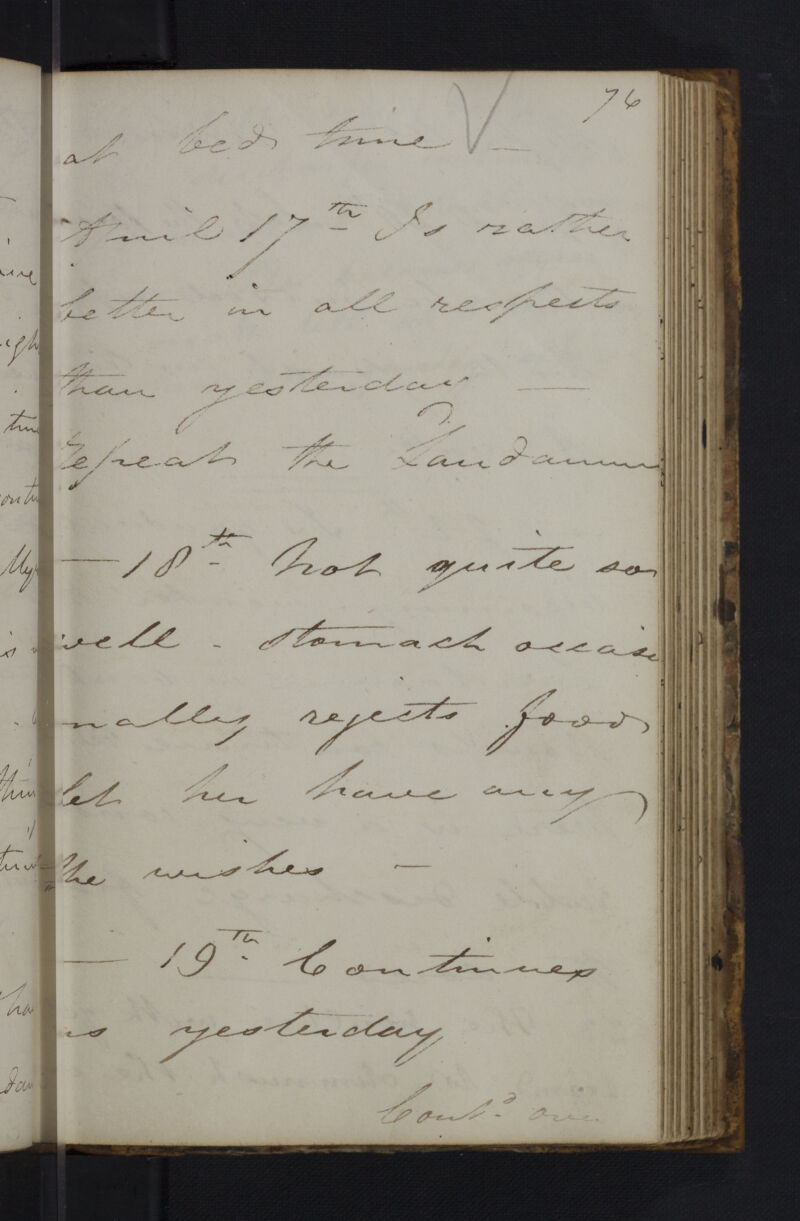 76
at bed time —
April 17th Is rather
better in all respects
than yesterday —
Repeat the Laudanum
— 18th Not quite so
well - Stomach occasio
nally rejects food
let her have any
she wishes —
— 19th Continues
as yesterday
Contd over